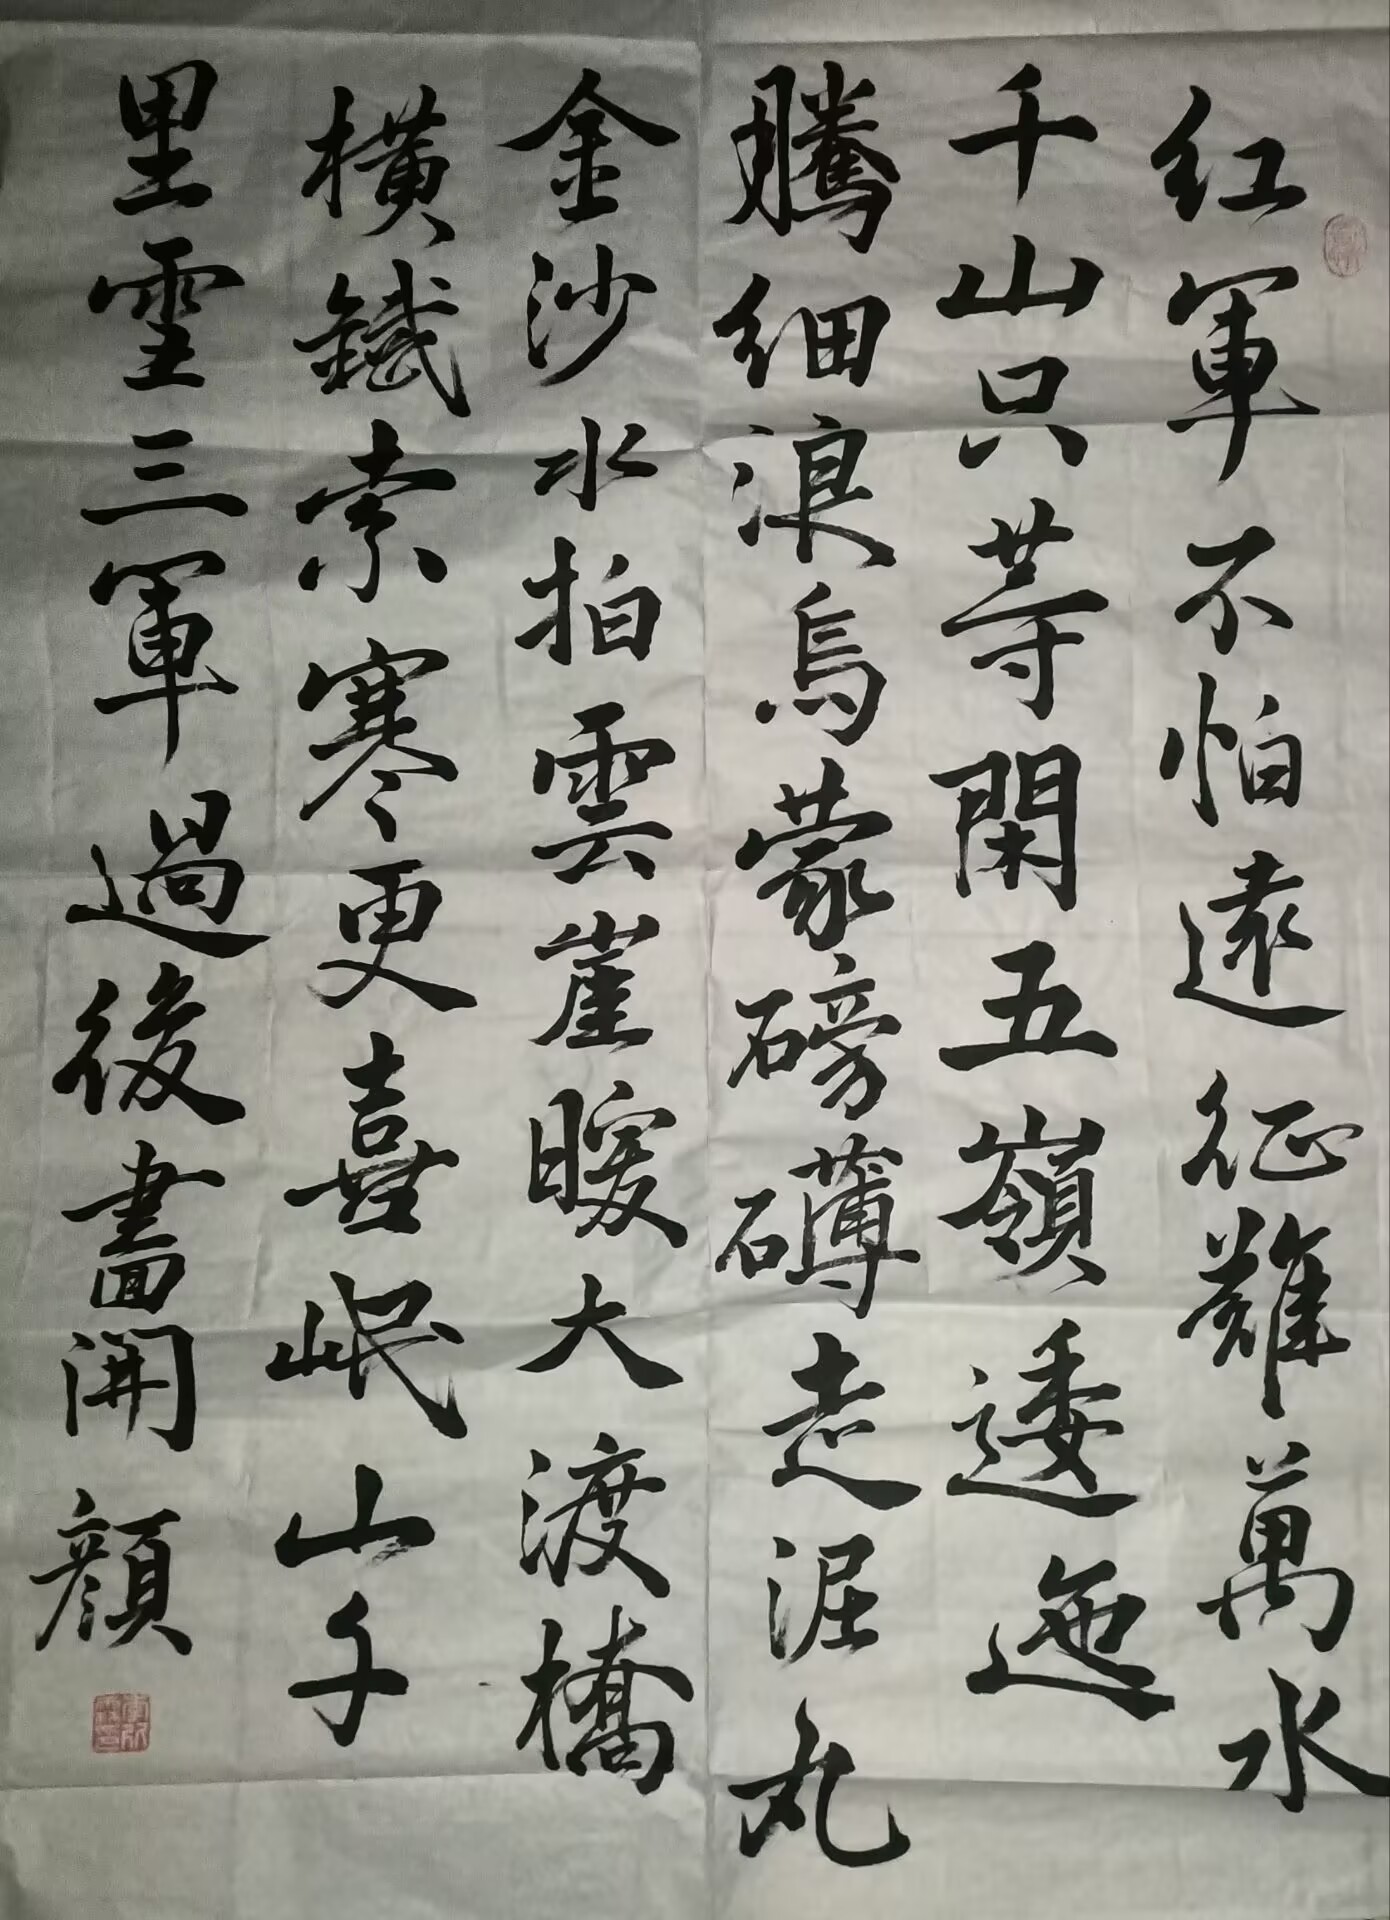 红軍不怕遠征難萬水
千山只等閑五嶺逶迤
騰細浪烏蒙磅礴走泥丸
金沙水拍雲崖暖大渡橋
横鐵索寒更喜岷山千
里雪三軍過後盡開顔